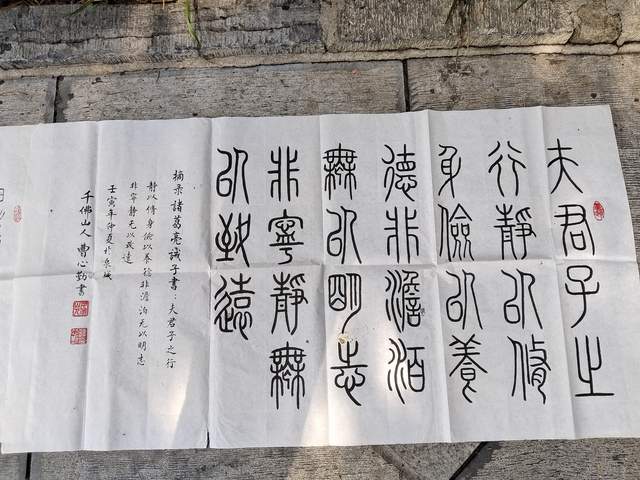 夫君子之
行靜以脩
身儉以養
德非澹泊
無以明志
非寧靜無
以致遠
摘录諸葛亮誡子書：夫君子之行
靜以修身儉以养德非澹泊无以明志
非寧靜无以致遠
壬寅年仲夏於泉城
千佛山人 曹心勤書